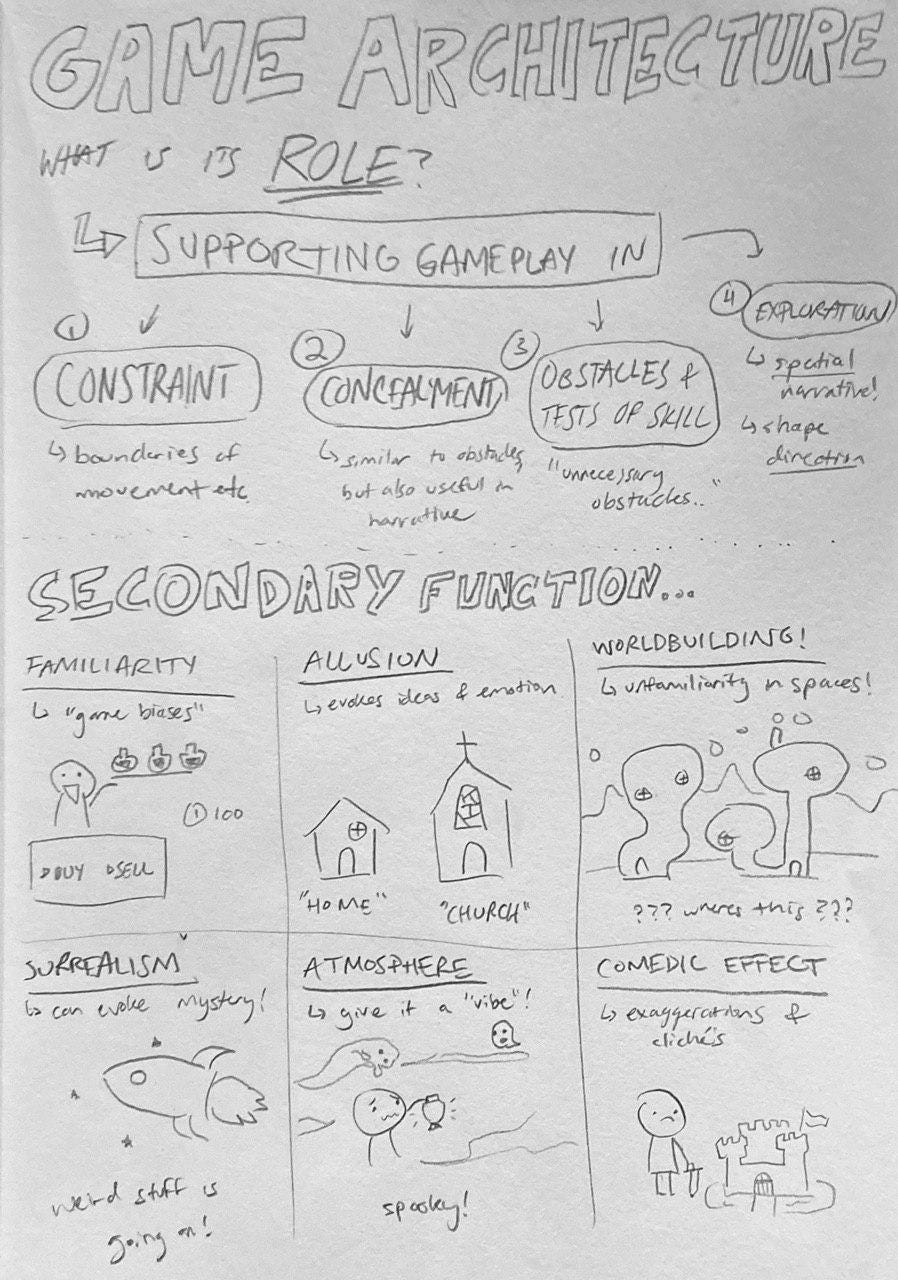 GAME ARCHITECTURE
WHAT IS ITS ROLE?
SUPPORTING GAMEPLAY IN
1
CONSTRAINT
↳ boundaries of
movement etc
2
CONCEALMENT
↳ similar to obstacles
but also useful in
narrative
3
OBSTACLES &
TESTS OF SKILL
"unnecessary
obstacles.."
4
EXPLORATION
↳ spatial
narrative!
↳ shape
direction
SECONDARY FUNCTION...
FAMILIARITY
↳ "game biases"
① 100
▷BUY ▷SELL
ALLUSION
↳ evokes ideas & emotion
"HOME"
"CHURCH"
WORLDBUILDING!
↳ unfamiliarity in spaces!
??? wheres this ???
SURREALISM
↳ can evoke mystery!
weird stuff is
going on!
ATMOSPHERE
↳ give it a "vibe"!
spooky!
COMEDIC EFFECT
↳ exaggerations &
cliché's